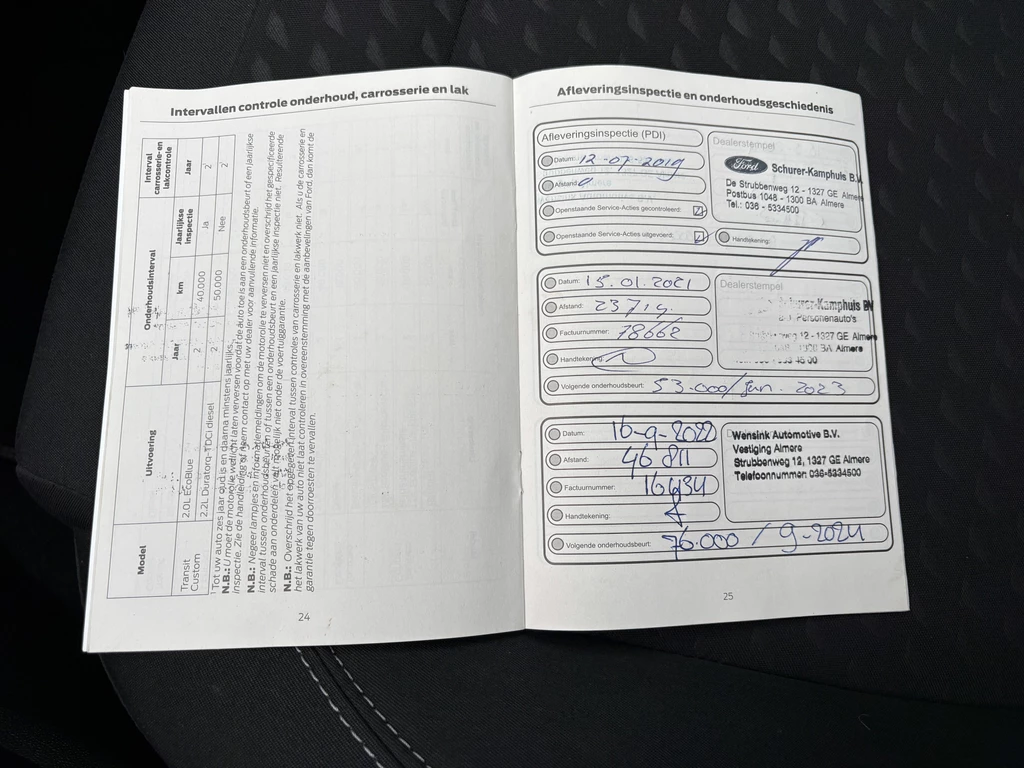 Intervallen controle onderhoud, carrosserie en lak
Model
Uitvoering
Onderhoudsinterval
Interval carrosserie-en lakcontrole
Jaar
km
Jaarlijkse inspectie
Jaar
Transit Custom
2.0L EcoBlue
2
40.000
Ja
2
2.2L Duratorq-TDCi diesel
2
50.000
Nee
2
Tot uw auto zes jaar oud is en daarna minstens jaarlijks.
N.B.: U moet de motorolie wellicht laten verversen voordat de auto toe is aan een onderhoudsbeurt of een jaarlijkse
inspectie. Zie de handleiding of neem contact op met uw dealer voor aanvullende informatie.
N.B.: Negeer lampjes en informatiemeldingen om de motorolie te verversen niet en overschrijd het gespecificeerde
interval tussen onderhoudsbeurten of tussen een onderhoudsbeurt en een jaarlijkse inspectie niet. Resulterende
schade aan onderdelen valt mogelijk niet onder de voertuiggarantie.
N.B.: Overschrijd het opgegeven interval tussen controles van carrosserie en lakwerk niet. Als u de carrosserie en
het lakwerk van uw auto niet laat controleren in overeenstemming met de aanbevelingen van Ford, dan komt de
garantie tegen doorroesten te vervallen.
24
Afleveringsinspectie en onderhoudsgeschiedenis
Afleveringsinspectie (PDI)
Datum: 12-07-2019
Afstand: 0
Openstaande Service-Acties gecontroleerd:
Openstaande Service-Acties uitgevoerd:
Dealerstempel
Ford Schurer-Kamphuis B.V.
De Strubbenweg 12 - 1327 GE Almere
Postbus 1048 - 1300 BA Almere
Tel.: 036 - 5334500
Handtekening:
Datum: 15.01.2021
Afstand: 23714
Factuurnummer: 78662
Handtekening:
Volgende onderhoudsbeurt: 53.000/jun. 2023
Dealerstempel
Schurer-Kamphuis BV
Personenauto's
12 - 1327 GE Almere
BA Almere
Datum: 16-9-2022
Afstand: 46811
Factuurnummer: 16934
Handtekening:
Volgende onderhoudsbeurt: 76.000 / 9-2024
Wensink Automotive B.V.
Vestiging Almere
Strubbenweg 12, 1327 GE Almere
Telefoonnummer: 036-5334500
25